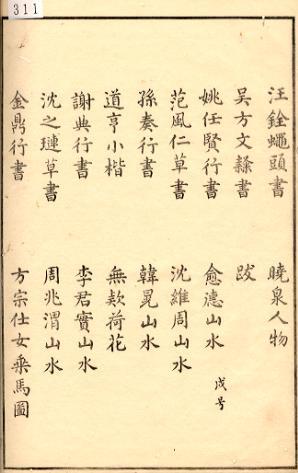 311
汪銓蠅頭書 曉泉人物
吴方文隸書 跋
姚任賢行書 愈德山水 戍号
范風仁草書 沈維周山水
孫奏行書 韓晃山水
道亨小楷 無欵荷花
謝典行書 李君實山水
沈之璉草書 周兆渭山水
金鼎行書 方宗仕女乘馬圖